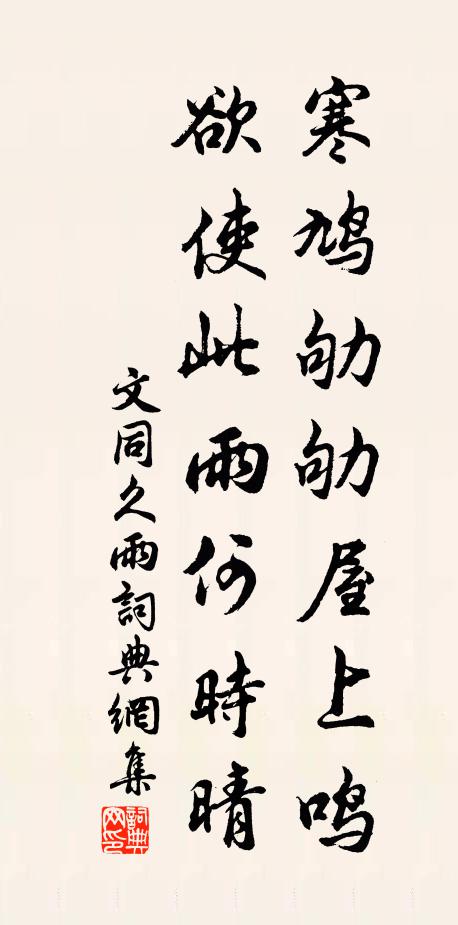 寒鸠劬劬屋上鸣
欲使此雨何時晴
文同久雨詞典網集
詞典
网印